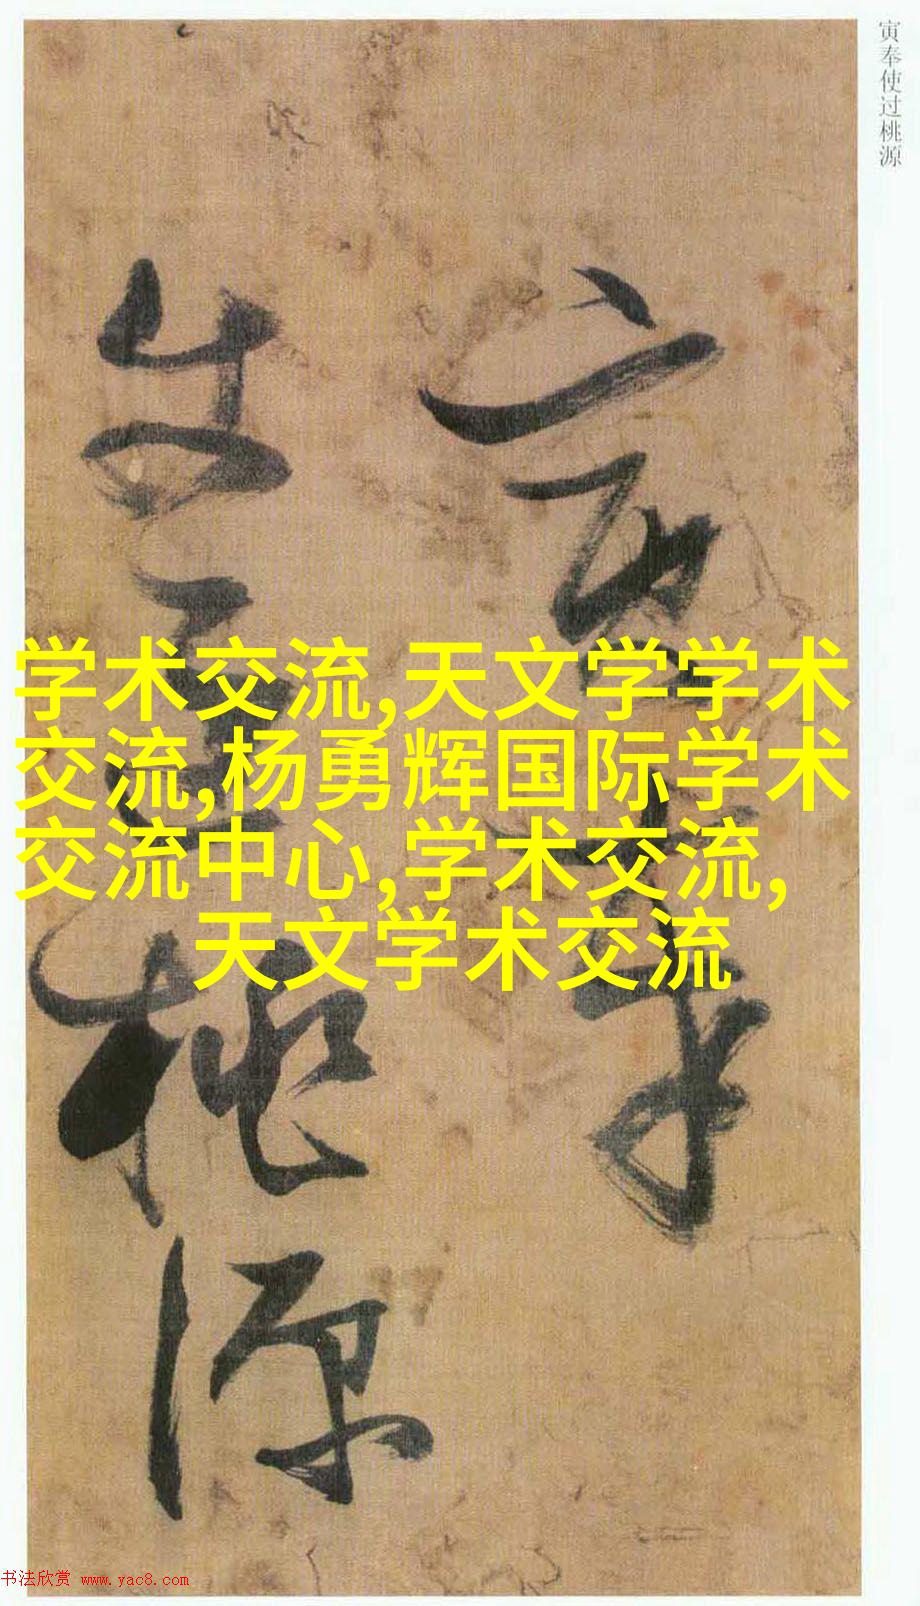 寅奉使过桃源
寅奉
使過桃源
学术交流,天文学学术
交流,杨勇辉国际学术
交流中心,学术交流,
天文学术交流
书法欣赏 www.yac8.com